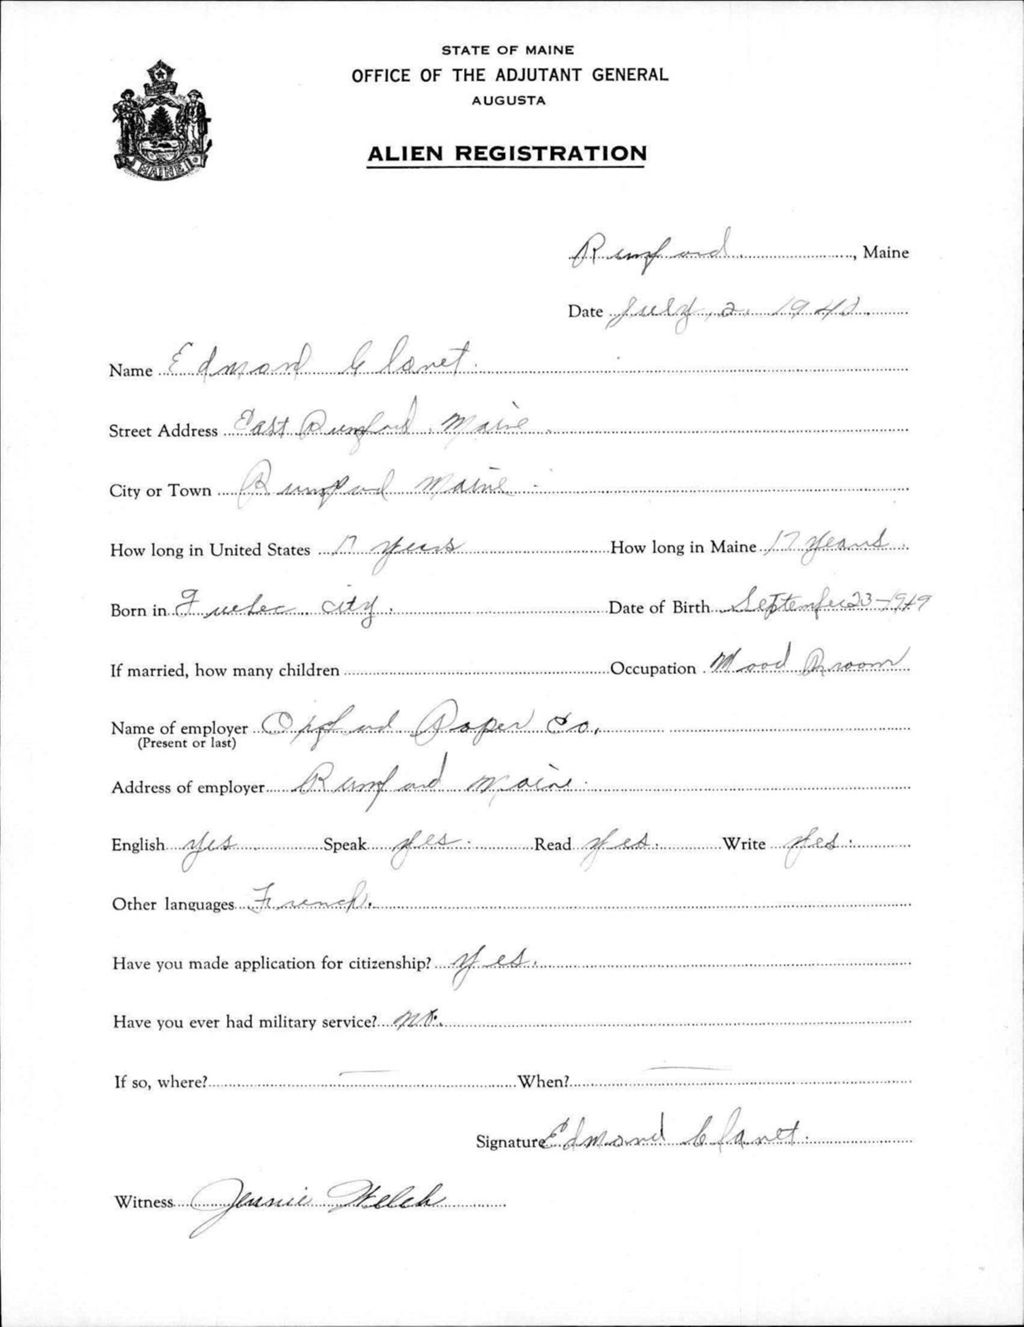 STATE OF MAINE
OFFICE OF THE ADJUTANT GENERAL
AUGUSTA
MAINE
ALIEN REGISTRATION
Rumford, Maine
Date July, 2, 1940.
Name Edmond Clanet.
Street Address East Rumford, Maine.
City or Town Rumford Maine
How long in United States 17 years How long in Maine 17 years.
Born in Quebec city. Date of Birth September 23-19
If married, how many children Occupation Wood Room
Name of employer Oxford Paper Co.
(Present or last)
Address of employer Rumford Maine.
English yes Speak yes. Read yes. Write yes.
Other languages French.
Have you made application for citizenship? yes.
Have you ever had military service? no.
If so, where? — When? —
Signature Edmond Clanet.
Witness Jennie Welch